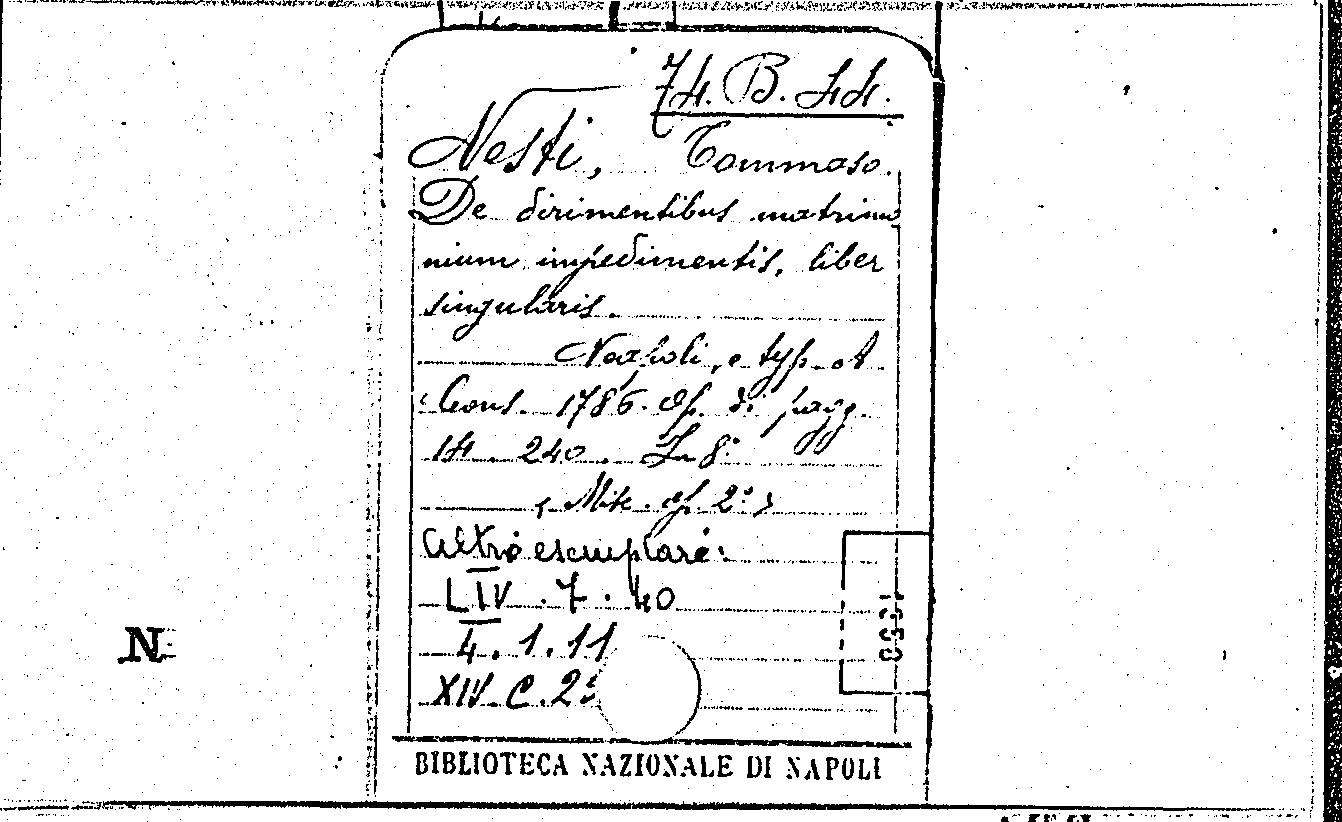 74. B. 44.
Nesti, Tommaso.
De dirimentibus matrimo
nium impedimentis, liber
singularis.
Napoli, e typ.
1786. di pagg.
14. 240. In 8°
altro esemplare:
LIV. 7. 40
4. 1. 11
XIV. C.
N
BIBLIOTECA NAZIONALE DI NAPOLI